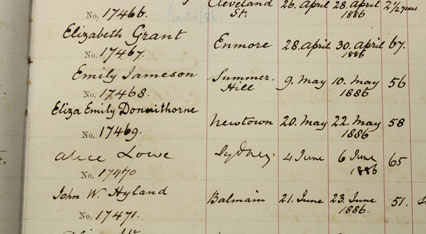 Cleveland 26. April 28. April 2½ years
No. 17466. St. 1886
Elizabeth Grant Enmore 28. April 30. April 67.
No. 17467. 1886
Emily Jameson Summer Hill 9. May 10. May 56
No. 17468. 1886
Eliza Emily Donnithorne Newtown 20. May 22. May 58
No. 17469. 1886
Alice Lowe Sydney 4 June 6 June 65
No. 17470 1886
John W. Hyland Balmain 21. June 23. June 51.
No. 17471. 1886.